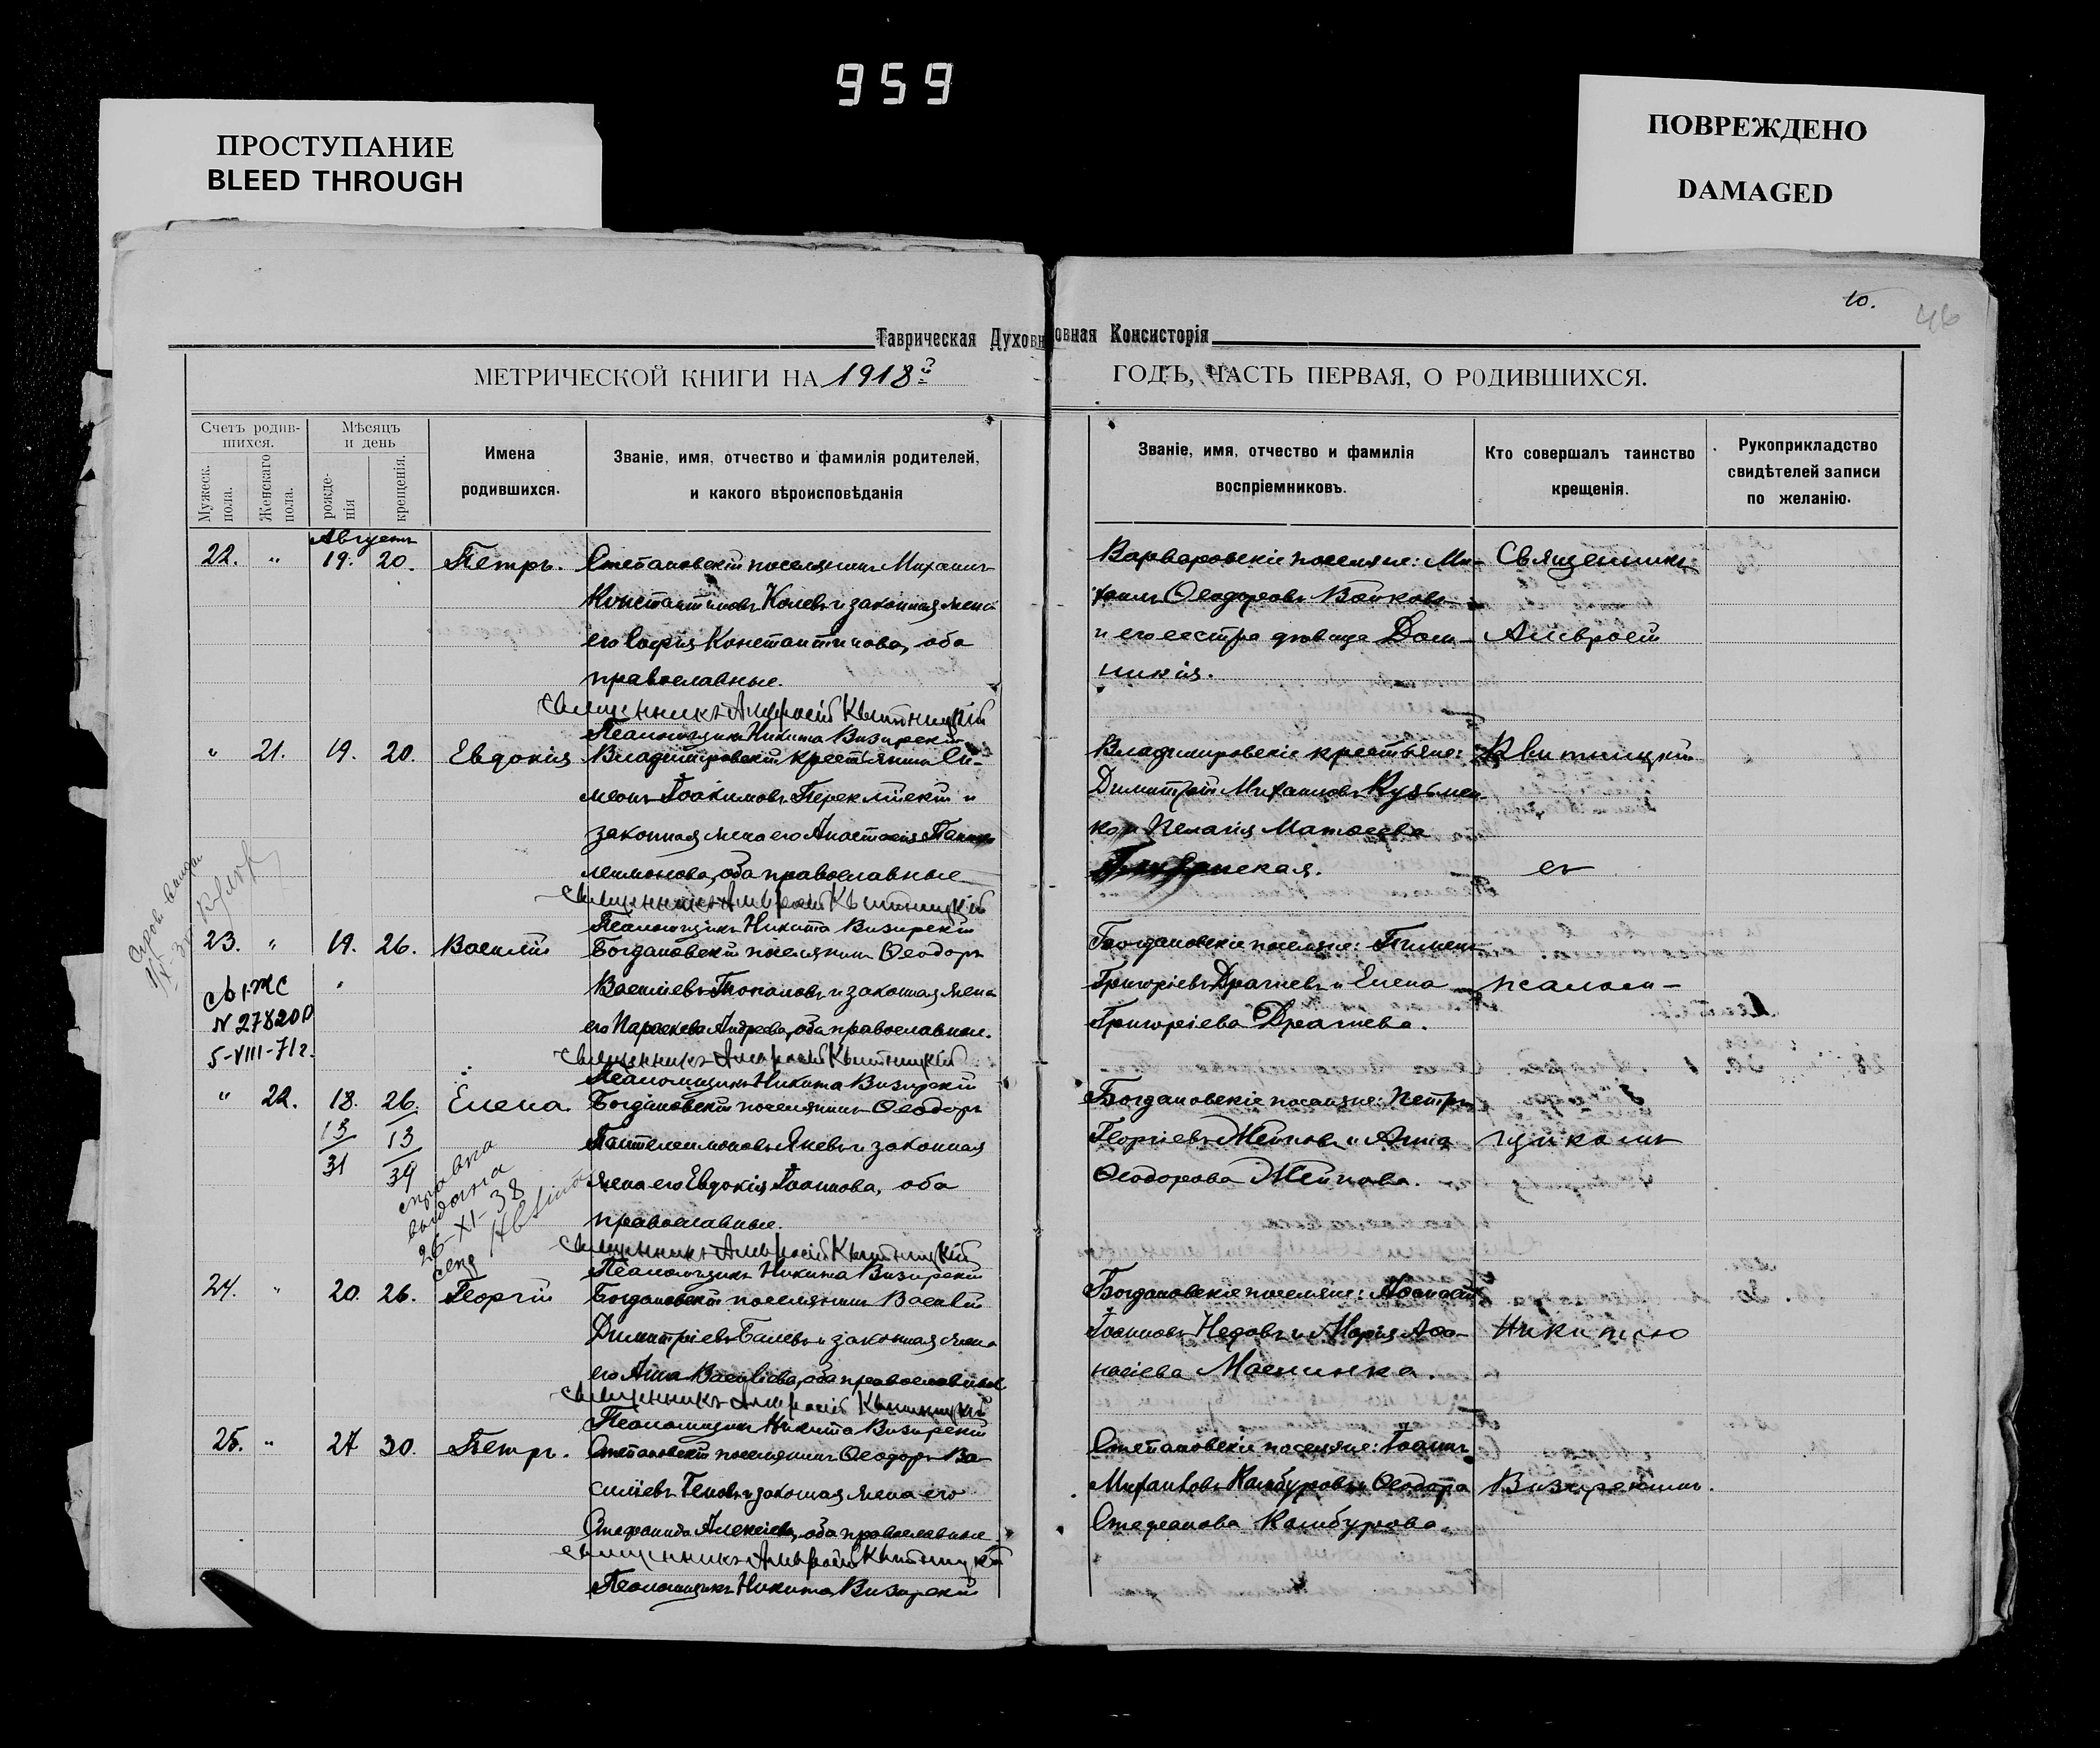 959
ПРОСТУПАНИЕ
BLEED THROUGH
ПОВРЕЖДЕНО
DAMAGED
10.
46
Таврическая Духовная Консисторія
МЕТРИЧЕСКОЙ КНИГИ НА 1918й ГОДЪ, ЧАСТЬ ПЕРВАЯ, О РОДИВШИХСЯ.
Счетъ родив-
шихся.
Мужеск.
пола.
Женскаго
пола.
Мѣсяцъ
и день
рожде-
нія
крещенія.
Имена
родившихся.
Званіе, имя, отчество и фамилія родителей,
и какого вѣроисповѣданія
Званіе, имя, отчество и фамилія
воспріемниковъ.
Кто совершалъ таинство
крещенія.
Рукоприкладство
свидѣтелей записи
по желанію.
Августъ
22. " 19. 20. Петръ.
Степановскій поселянинъ Михаилъ
Константиновъ Колевъ и законная жена
его Софія Константинова, оба
православные.
Священникъ Амвросій Квитницкій
Псаломщикъ Никита Визирскій
Варваровскіе поселяне: Ми-
хаилъ Ѳеодоровъ Войковъ
и его сестра дѣвица Дом-
никія.
" 21. 19. 20. Евдокія
Владиміровскій крестьянинъ Си-
меонъ Іоакимовъ и
законная жена его Анастасія Панте-
леимонова, оба православные
Священникъ Амвросій Квитницкій
Псаломщикъ Никита Визирскій
Владиміровскіе крестьяне:
Димитрій Михаиловъ Кузьмен-
ко и Пелагія Матѳеева
23. " 19. 26. Василій
Богдановскій поселянинъ Ѳеодоръ
Васильевъ Топаловъ и законная жена
его Параскева Андреева, оба православные.
Священникъ Амвросій Квитницкій
Псаломщикъ Никита Визирскій
Богдановскіе поселяне: Пименъ
Григоріевъ Драгневъ и Елена
Григоріева Драгнева.
N 278200
5-VIII-71г.
" 22. 18. 26. Елена.
13 13
31 39
Богдановскій поселянинъ Ѳеодоръ
Пантелеимоновъ Яневъ и законная
жена его Евдокія Іоаннова, оба
православные.
Священникъ Амвросій Квитницкій
Псаломщикъ Никита Визирскій
Богдановскіе поселяне: Петръ
Георгіевъ Желповъ и Анна
Ѳеодорова Желпова.
справка
выдана
26-XI-38
24. " 20. 26. Георгій
Богдановскій поселянинъ Василій
Димитріевъ Балевъ и законная жена
его Анна Васильева, оба православные
Священникъ Амвросій Квитницкій
Псаломщикъ Никита Визирскій
Богдановскіе поселяне: Аѳанасій
Іоанновъ Недовъ и Марія Аѳа-
насіева Маслинка.
25. " 27 30. Петръ.
Степановскій поселянинъ Ѳеодоръ Ва-
силіевъ Геновъ и законная жена его
Стефанида Алексіева, оба православные
Священникъ Амвросій Квитницкій
Псаломщикъ Никита Визирскій
Степановскіе поселяне: Іоаннъ
Михаиловъ Камбуровъ и Ѳеодора
Стефанова Камбурова.
Священникъ
Амвросій
Квитницкій
съ
псалом-
щикомъ
Никитою
Визирскимъ.